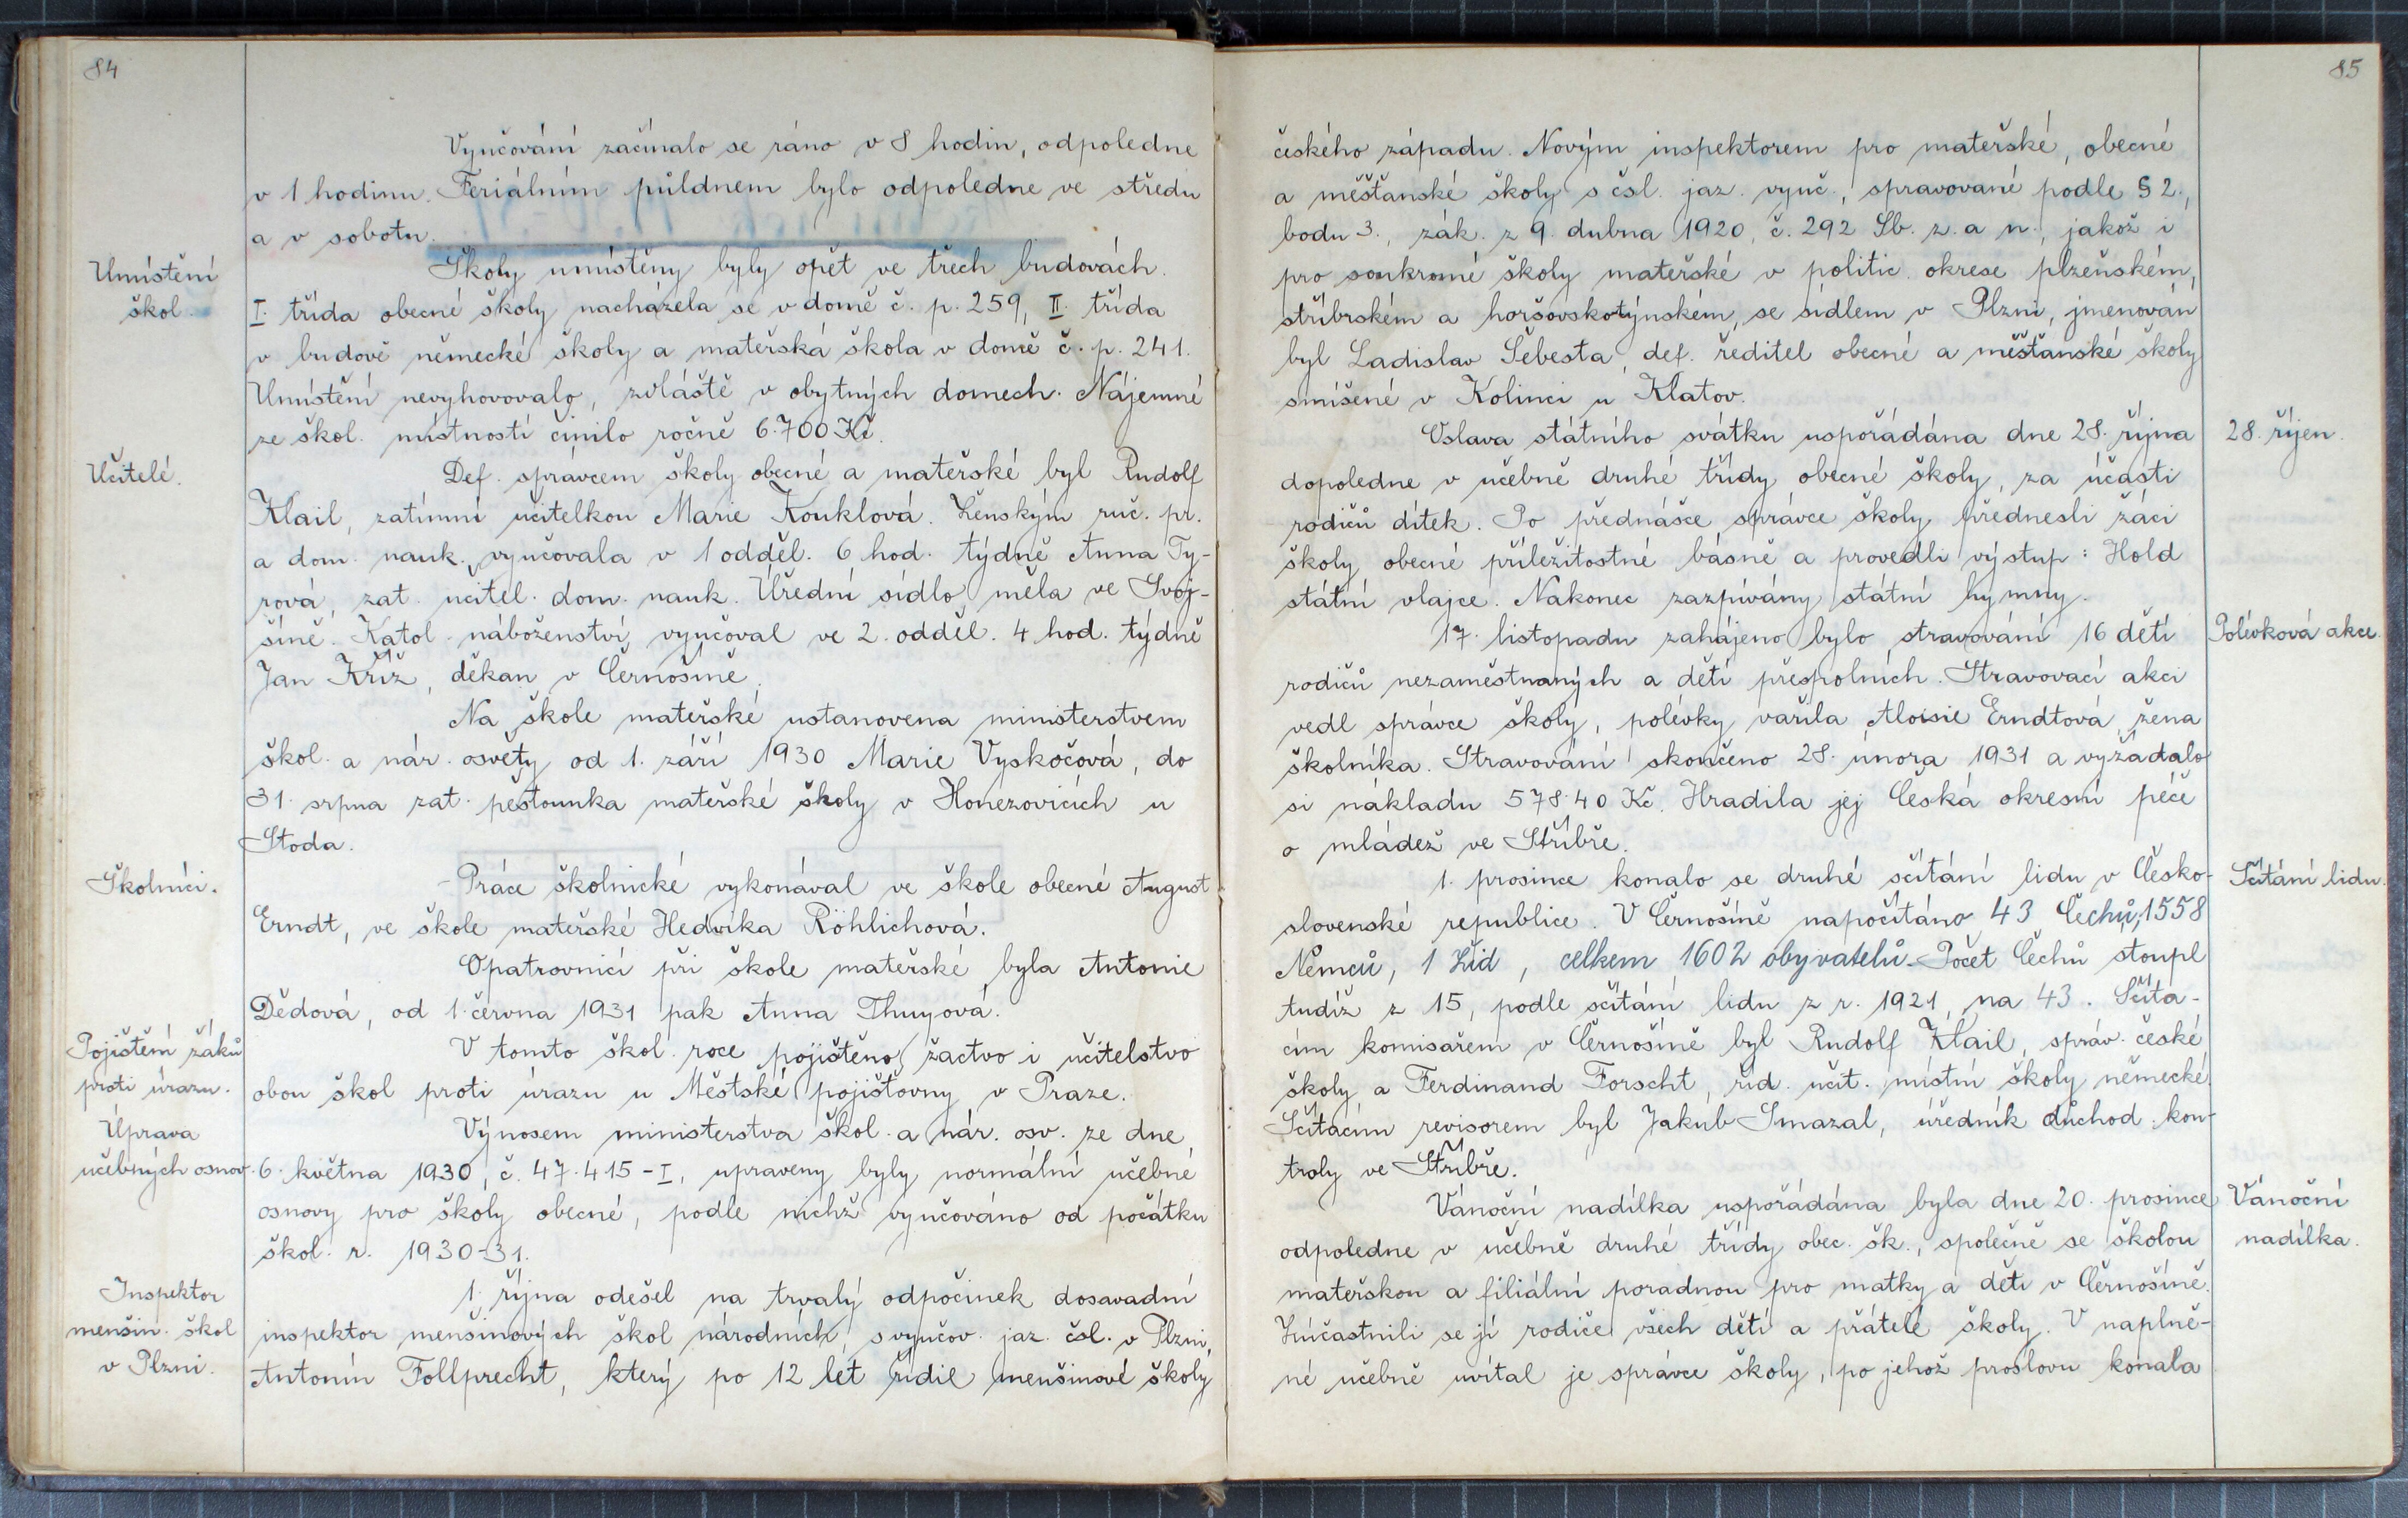 84
Vyučování začínalo se ráno v 8 hodin, odpoledne
v 1 hodinu. Feriálním půldnem bylo odpoledne ve středu
a v sobotu.
Umístění
škol.
Školy umístěny byly opět ve třech budovách.
I. třída obecné školy nacházela se v domě č. p. 259, II. třída
v budově německé školy a mateřská škola v domě č. p. 241.
Umístění nevyhovovalo, zvláště v obytných domech. Nájemné
ze škol. místností činilo ročně 6.700 Kč.
Učitelé.
Def. správcem školy obecné a mateřské byl Rudolf
Klail, zatímní učitelkou Marie Kouklová. Ženským ruč. pr.
a dom. nauk. vyučovala v 1 odděl. 6 hod. týdně Anna Ty-
rová, zat. učitel. dom. nauk. Úřední sídlo měla ve Svoj-
šíně. Katol. náboženství vyučoval ve 2. odděl. 4 hod. týdně
Jan Kříž, děkan v Černošíně.
Na škole mateřské ustanovena ministerstvem
škol. a nár. osvěty od 1. září 1930 Marie Vyskočová, do
31. srpna zat. pěstounka mateřské školy v Honezovicích u
Stoda.
Školníci.
Práce školnické vykonával ve škole obecné August
Erndt, ve škole mateřské Hedvika Röhlichová.
Opatrovnicí při škole mateřské byla Antonie
Dědová, od 1. června 1931 pak Anna Thuyová.
Pojištění žáků
proti úrazu.
V tomto škol. roce pojištěno žactvo i učitelstvo
obou škol proti úrazu u Městské pojišťovny v Praze.
Úprava
učebných osnov.
Výnosem ministerstva škol. a nár. osv. ze dne
6. května 1930, č. 47.415-I, upraveny byly normální učebné
osnovy pro školy obecné, podle nichž vyučováno od počátku
škol. r. 1930-31.
Inspektor
menšin. škol
v Plzni.
1. října odešel na trvalý odpočinek dosavadní
inspektor menšinových škol národních s vyučov. jaz. čsl. v Plzni,
Antonín Follprecht, který po 12 let řídil menšinové školy
85
českého západu. Novým inspektorem pro mateřské, obecné
a měšťanské školy s čsl. jaz. vyuč., spravované podle § 2.,
bodu 3., zák. z 9. dubna 1920, č. 292 Sb. z. a n., jakož i
pro soukromé školy mateřské v politic. okrese plzeňském,
stříbrském a horšovskotýnském, se sídlem v Plzni, jmenován
byl Ladislav Šebesta, def. ředitel obecné a měšťanské školy
smíšené v Kolinci u Klatov.
28. říjen.
Oslava státního svátku uspořádána dne 28. října
dopoledne v učebně druhé třídy obecné školy, za účasti
rodičů dítek. Po přednášce správce školy přednesli žáci
školy obecné příležitostné básně a provedli výstup: Hold
státní vlajce. Nakonec zazpívány státní hymny.
Polévková akce.
17. listopadu zahájeno bylo stravování 16 dětí
rodičů nezaměstnaných a dětí přespolních. Stravovací akci
vedl správce školy, polévky vařila Aloisie Erndtová, žena
školníka. Stravování skončeno 28. února 1931 a vyžádalo
si nákladu 578.40 Kč. Hradila jej Česká okresní péče
o mládež ve Stříbře.
Sčítání lidu.
1. prosince konalo se druhé sčítání lidu v Česko-
slovenské republice. V Černošíně napočítáno 43 Čechů, 1558
Němců, 1 Žid, celkem 1602 obyvatelů. Počet Čechů stoupl
tudíž z 15, podle sčítání lidu z r. 1921, na 43. Sčíta-
cím komisařem v Černošíně byl Rudolf Klail, správ. české
školy a Ferdinand Forscht, říd. učit. místní školy německé.
Sčítacím revisorem byl Jakub Smazal, úředník důchod. kon-
troly ve Stříbře.
Vánoční
nadílka.
Vánoční nadílka uspořádána byla dne 20. prosince
odpoledne v učebně druhé třídy obec. šk., společně se školou
mateřskou a filiální poradnou pro matky a děti v Černošíně.
Zúčastnili se jí rodiče všech dětí a přátelé školy. V naplně-
né učebně uvítal je správce školy, po jehož proslovu konala